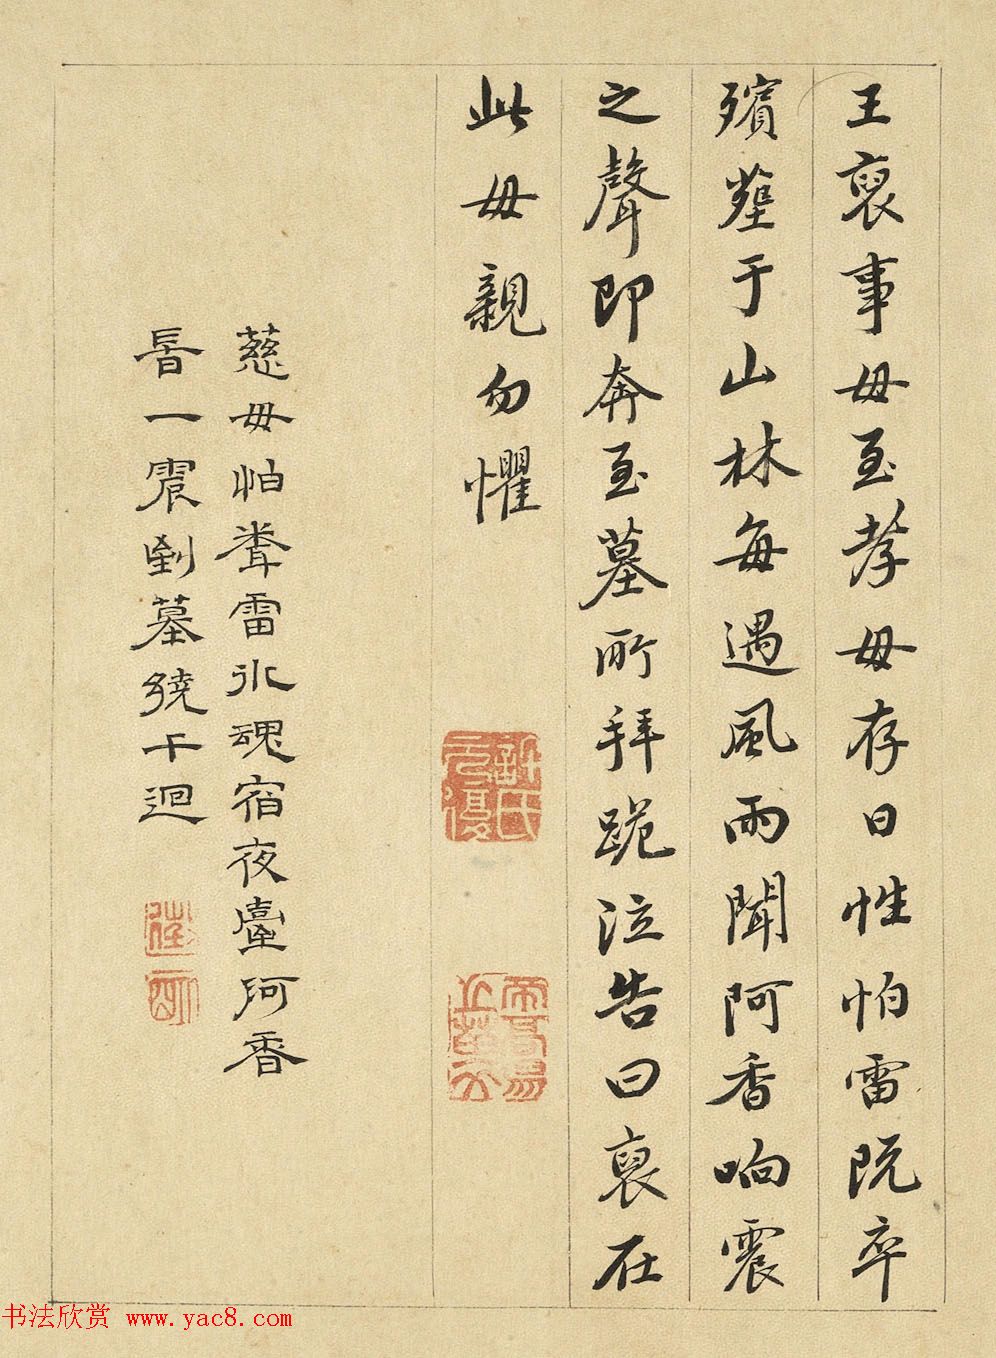 王裒事母至孝母存日性怕雷既卒
殯塟于山林每遇風雨聞阿香响震
之聲即奔至墓所拜跪泣告曰裒在
此母親勿懼
慈母怕聞雷氷魂宿夜臺阿香
時一震到墓繞千迴
許氏元復
書法欣赏 www.yac8.com